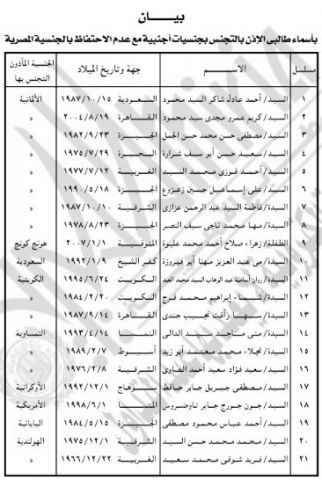 بيــــان
بأسماء طالبى الإذن بالتجنس بجنسيات أجنبية مع عدم الاحتفاظ بالجنسية المصرية
مسلسل الاســـم جهة وتاريخ الميلاد الجنسية المأذون التجنس بها
١ السيد/ أحمد عادل شاكر السيد محمود السعودية ١٩٨٧/١٠/١٥ الألمانية
٢ السيد/ كريم عمرو مجدى سيد محمود القاهرة ٢٠٠٤/٨/١٩ »
٣ السيد/ مصطفى حسن محمد حسن الجمل الجيزة ١٩٨٢/٩/٢٣ »
٤ السيد/ سعيد حسن أبو سيف شرارة الجيزة ١٩٧٥/٧/٢٩ »
٥ السيد/ أحمد فوزى محمد السيد الغربية ١٩٧٧/٧/١٢ »
٦ السيد/ على إسماعيل حسين زعزوع الجيزة ١٩٩٠/٥/١٨ »
٧ السيدة/ فاطمة السيد عبد الرحمن عزازى الشرقية ١٩٨٧/١٠/١٠ »
٨ السيدة/ مها محمد ناجى سيف النصر الجيزة ١٩٧٨/٨/٢٣ »
٩ الطفلة/ زهراء صلاح أحمد محمد عليوة المنوفية ٢٠٠٧/١/١ هونج كونج
١٠ السيدة/ مى عبد العزيز مهنا أبو فيروزة كفر الشيخ ١٩٩٢/١/٩ السعودية
١١ السيدة/ روان أسامة عبد الوهاب السيد محمد الكويت ١٩٩٥/٦/٢٤ الكويتية
١٢ السيدة/ شيماء إبراهيم محمد فرج الكويت ١٩٨٤/٢/٢٠ »
١٣ السيدة/ سها رأفت نجيب جندى القاهرة ١٩٨٧/٩/١٤ »
١٤ السيدة/ منى ماجد الدالى النمسا ١٩٩٣/٤/١٤ النمساوية
١٥ السيدة/ نجلاء محمد معتمد أبو زيد أسيوط ١٩٨٩/٢/٧ »
١٦ السيد/ سعيد فؤاد سعيد أحمد الصاوى الشرقية ١٩٧٦/٢/٨ »
١٧ السيد/ مصطفى جبريل جابر حافظ سوهاج ١٩٩٢/١٢/١ الأوكرانية
١٨ السيد/ جون جورج جابر تاوضروس المنيا ١٩٩٨/٦/١ الأمريكية
١٩ السيد/ أحمد عباس محمود مصطفى الجيزة ١٩٨٤/٥/١٥ اليابانية
٢٠ السيد/ محمد محمد حسن السيد الشرقية ١٩٧٥/١٢/١ الهولندية
٢١ السيد/ فريد شوقى محمد سعيد الغربية ١٩٦٦/١٢/٢٢ »